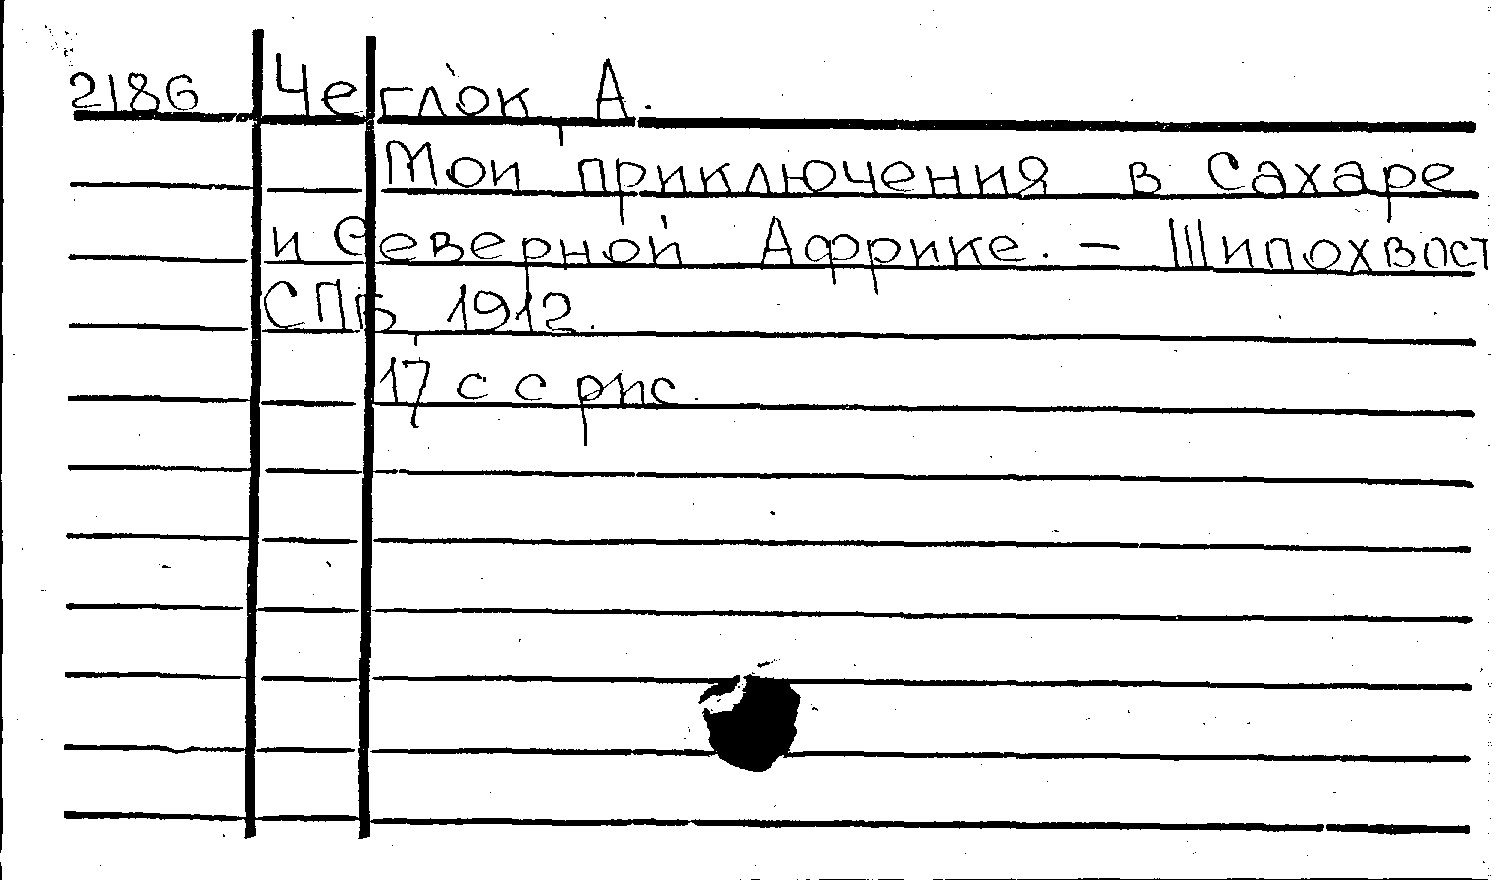 2186 Чеглок, А.
Мои приключения в Сахаре
и Северной Африке. - Шипохвост
СПБ, 1912.
17 с с рис.